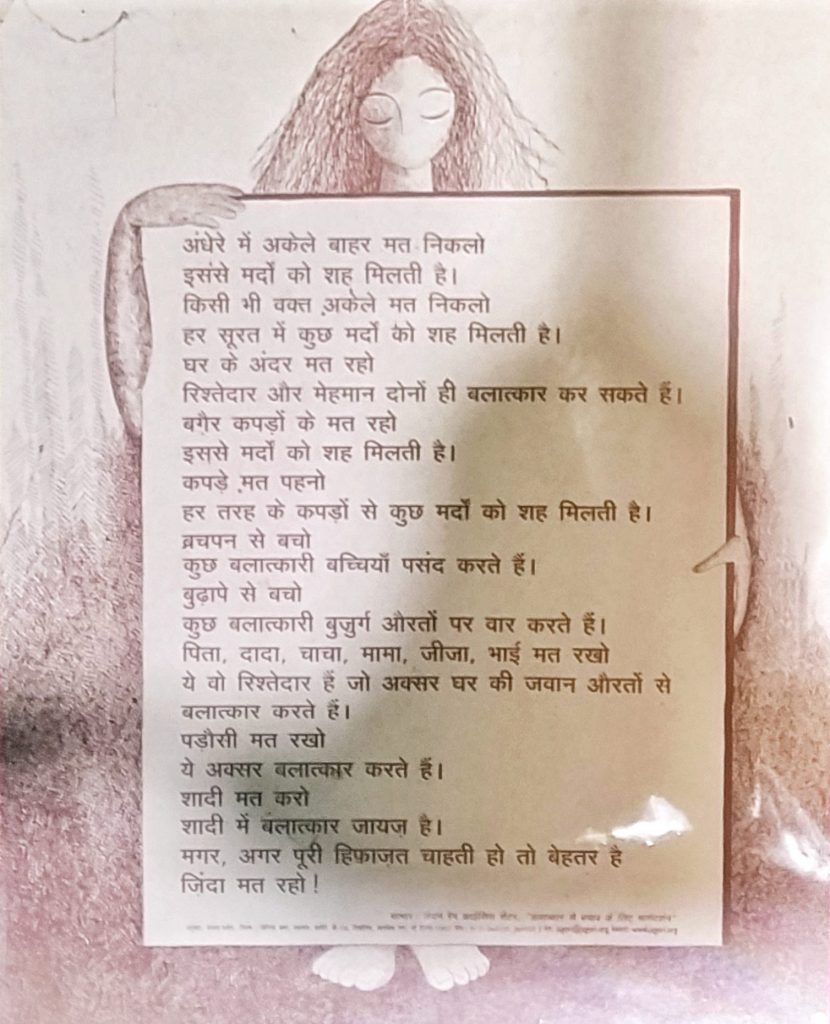 अंधेरे में अकेले बाहर मत निकलो
इससे मर्दों को शह मिलती है।
किसी भी वक्त अकेले मत निकलो
हर सूरत में कुछ मर्दों को शह मिलती है।
घर के अंदर मत रहो
रिश्तेदार और मेहमान दोनों ही बलात्कार कर सकते हैं।
बगैर कपड़ों के मत रहो
इससे मर्दों को शह मिलती है।
कपड़े मत पहनो
हर तरह के कपड़ों से कुछ मर्दों को शह मिलती है।
बचपन से बचो
कुछ बलात्कारी बच्चियाँ पसंद करते हैं।
बुढ़ापे से बचो
कुछ बलात्कारी बुज़ुर्ग औरतों पर वार करते हैं।
पिता, दादा, चाचा, मामा, जीजा, भाई मत रखो
ये वो रिश्तेदार हैं जो अक्सर घर की जवान औरतों से
बलात्कार करते हैं।
पड़ौसी मत रखो
ये अक्सर बलात्कार करते हैं।
शादी मत करो
शादी में बलात्कार जायज़ है।
मगर, अगर पूरी हिफ़ाज़त चाहती हो तो बेहतर है
ज़िंदा मत रहो!